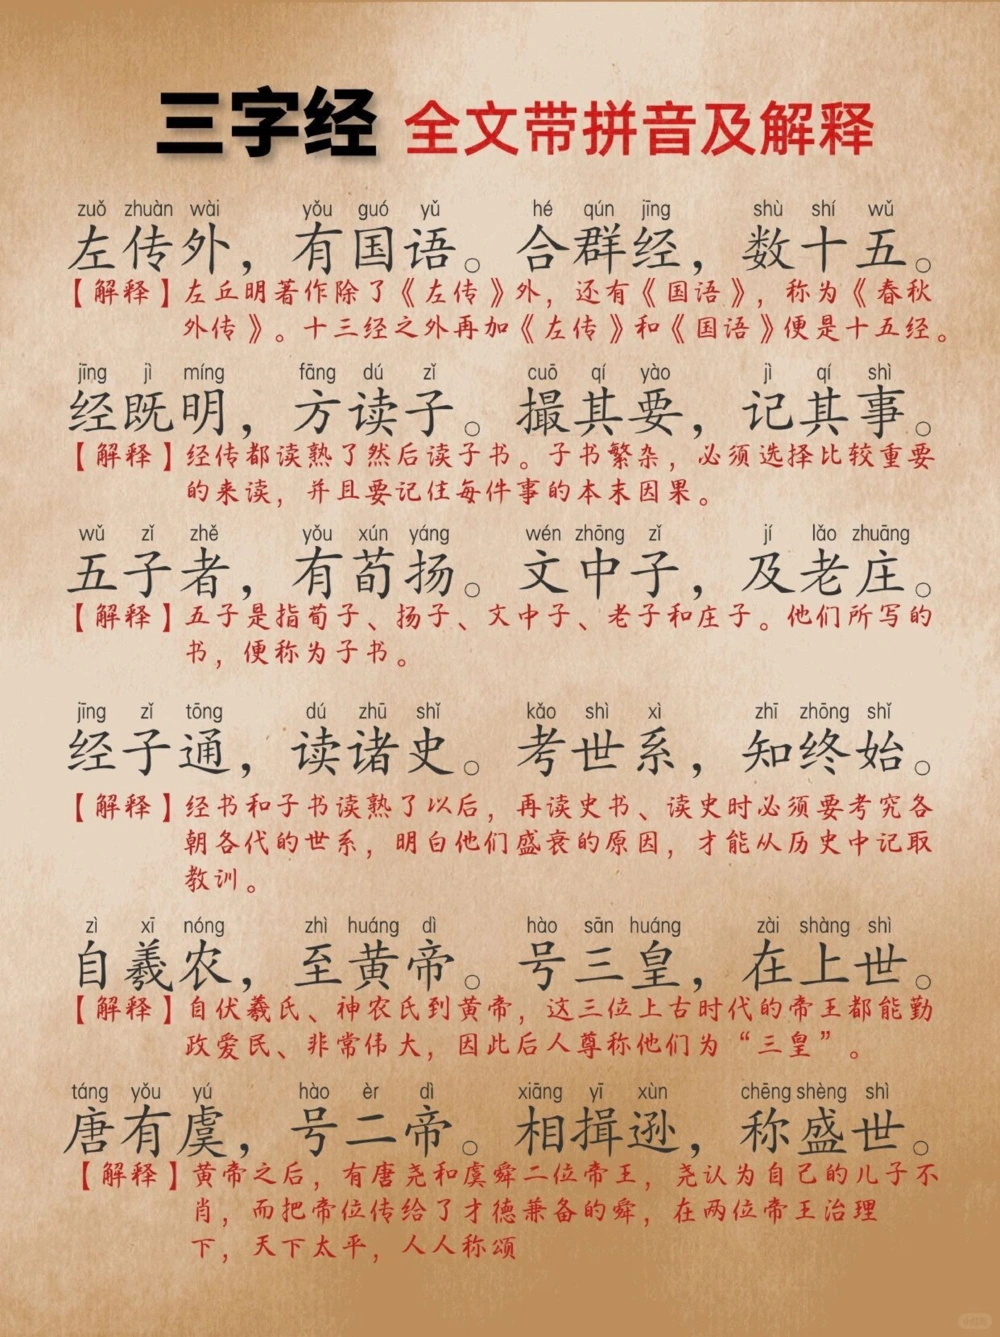 三字经 全文带拼音及解释
zuǒ zhuàn wài yǒu guó yǔ hé qún jīng shù shí wǔ
左传外，有国语。合群经，数十五。
【解释】左丘明著作除了《左传》外，还有《国语》，称为《春秋
外传》。十三经之外再加《左传》和《国语》便是十五经。
jīng jì míng fāng dú zǐ cuō qí yào jì qí shì
经既明，方读子。撮其要，记其事。
【解释】经传都读熟了然后读子书。子书繁杂，必须选择比较重要
的来读，并且要记住每件事的本末因果。
wǔ zǐ zhě yǒu xún yáng wén zhōng zǐ jí lǎo zhuāng
五子者，有荀扬。文中子，及老庄。
【解释】五子是指荀子、扬子、文中子、老子和庄子。他们所写的
书，便称为子书。
jīng zǐ tōng dú zhū shǐ kǎo shì xì zhī zhōng shǐ
经子通，读诸史。考世系，知终始。
【解释】经书和子书读熟了以后，再读史书、读史时必须要考究各
朝各代的世系，明白他们盛衰的原因，才能从历史中记取
教训。
zì xī nóng zhì huáng dì hào sān huáng zài shàng shì
自羲农，至黄帝。号三皇，在上世。
【解释】自伏羲氏、神农氏到黄帝，这三位上古时代的帝王都能勤
政爱民、非常伟大，因此后人尊称他们为“三皇”。
táng yǒu yú hào èr dì xiāng yī xùn chēng shèng shì
唐有虞，号二帝。相揖逊，称盛世。
【解释】黄帝之后，有唐尧和虞舜二位帝王，尧认为自己的儿子不
肖，而把帝位传给了才德兼备的舜，在两位帝王治理
下，天下太平，人人称颂